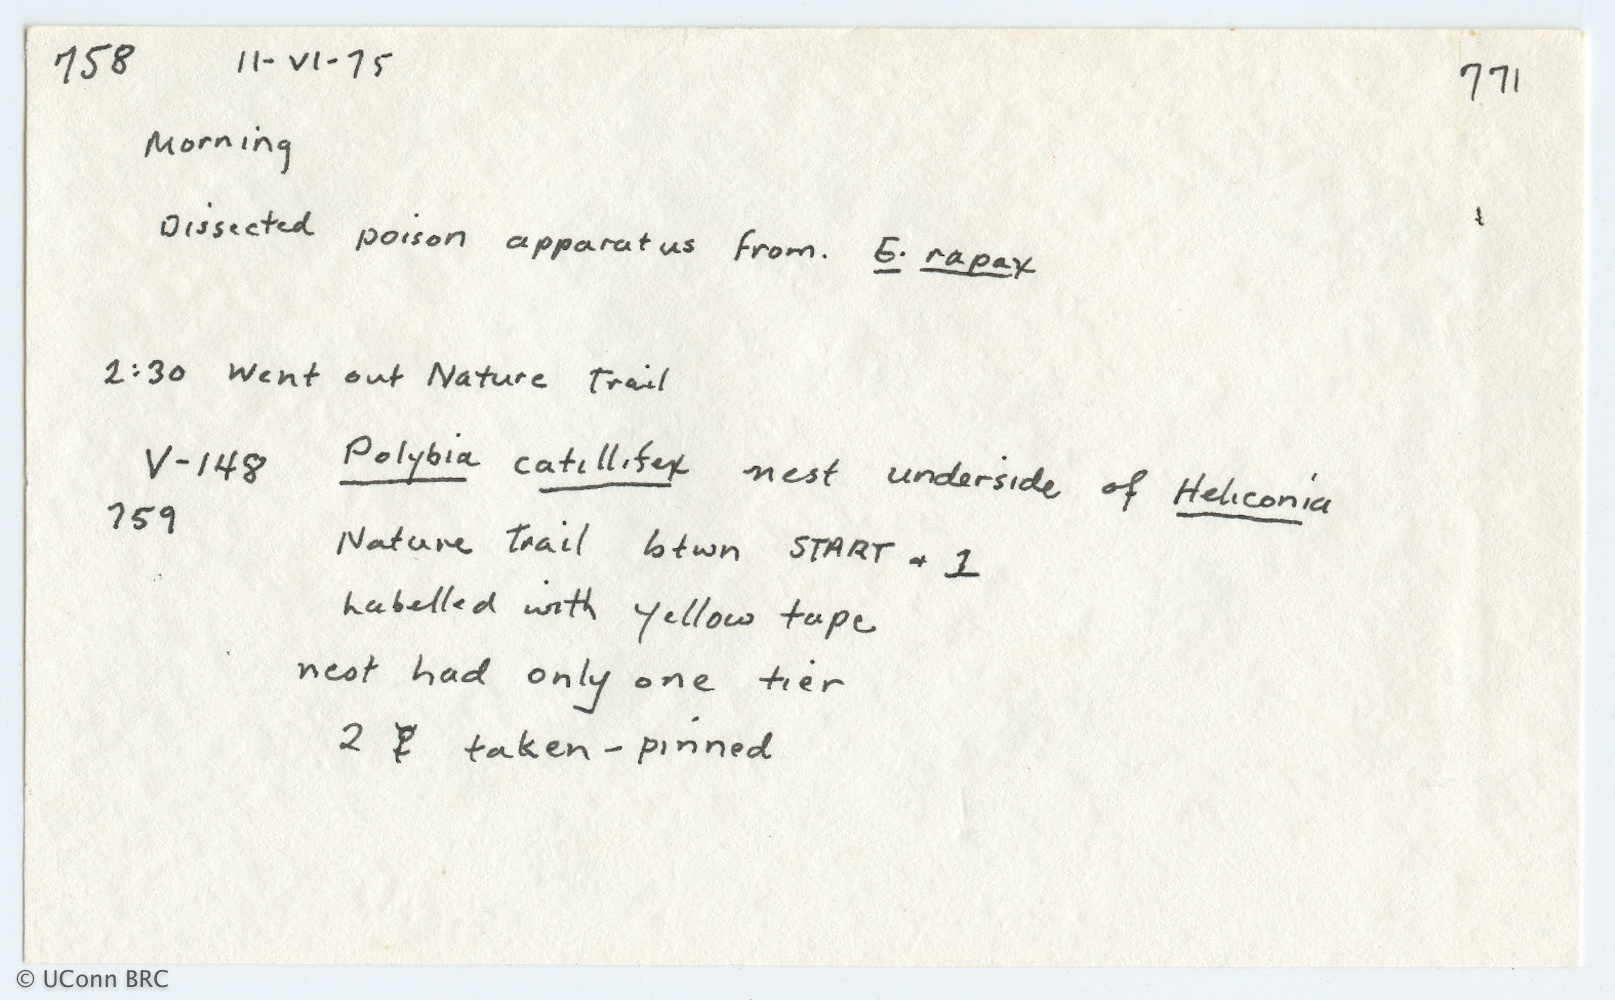 758 11-VI-75 771
Morning
Dissected poison apparatus from. E. rapax
2:30 Went out Nature Trail
V-148 Polybia catillifex nest underside of Heliconia
759
Nature Trail btwn START + 1
Labelled with yellow tape
nest had only one tier
2 ☿ taken - pinned
© UConn BRC